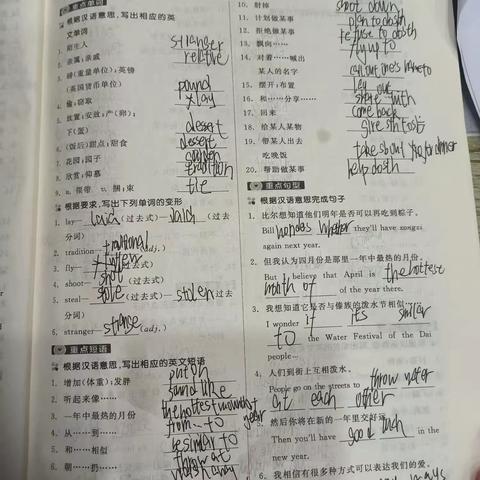 重点单词
根据汉语意思,写出相应的英
文单词
1. 陌生人 stranger
2. 亲属;亲戚 relative
3. 磅(重量单位);英镑
(英国货币单位) pound
4. 偷;窃取
5. 放置;安放;产(卵);
下(蛋) dessert
6. (饭后)甜点;甜食 dessert
7. 花园;园子 garden
8. 欣赏;仰慕
9. n. 领带 v. 捆;束 tie
根据要求,写出下列单词的变形
1. lay— laid (过去式)— (过去
分词)
2. tradition— (adj.)
3. fly— (过去式)
4. shoot— shot (过去式)
5. steal— stole (过去式)— stolen (过去
分词)
6. stranger— strange (adj.)
重点短语
根据汉语意思,写出相应的英文短语
1. 增加(体重);发胖 put on
2. 听起来像…… sound like
3. 一年中最热的月份 the hottest
4. 从……到…… from … to
5. 和……相似 be similar to
6. 朝……扔…… throw at
10. 射掉 shoot down
11. 计划做某事 plan to do sth
12. 拒绝做某事 refuse to do sth
13. 飘向…… fly up to
14. 对着……喊出
某人的名字 call out one's name to
15. 摆开;布置 lay out
16. 和……分享…… share with
17. 回来 come back
18. 给某人某物 give sth to sb
19. 带某人出去
吃晚饭 take sb out for dinner
20. 帮助做某事 help do sth
重点句型
根据汉语意思完成句子
1. 比尔想知道他们明年是否可以再吃到粽子。
Bill wonders whether they'll have zongzi
again next year.
2. 但我认为四月份是那里一年中最热的月份。
But I believe that April is the hottest
month of of the year there.
3. 我想知道它是否与傣族的泼水节相似
I wonder if it's similar
to the Water Festival of the Dai
people…
4. 人们到街上互相泼水。
People go on the streets to throw water
at each other
然后你将在新的一年里交好运
Then you'll have good luck in the
new year.
5. 我相信有很多种方式可以表达我们的爱。
ways